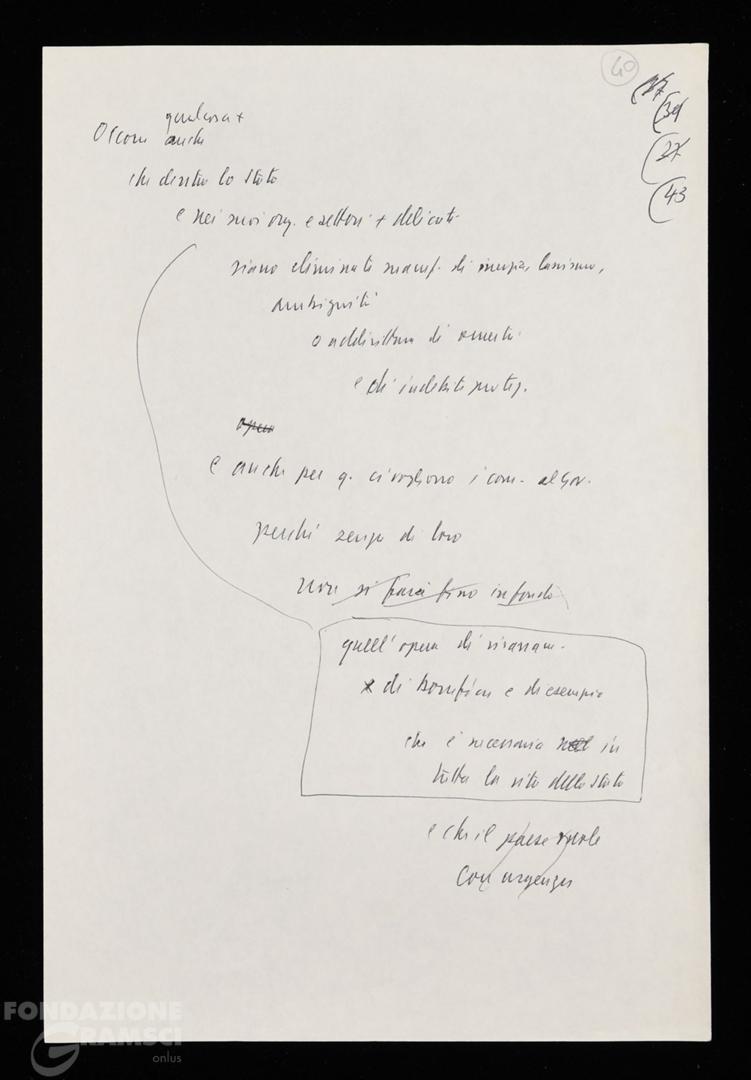 40
37
(39
(27
(43
qualcosa +
Occorre anche
che dentro lo Stato
e nei suoi org. e settori + delicati
siano eliminate manif. di
ambiguità
o addirittura di omertà
e di indebite protez.
opera
e anche per q. ci vogliono i com. al Gov.
perché senza di loro
non si farà fino in fondo
quell'opera di risanam.
di bonifica e di esempio
che è necessaria nel in
tutta la vita dello Stato
e che il paese vuole
con urgenza
FONDAZIONE
GRAMSCI
onlus